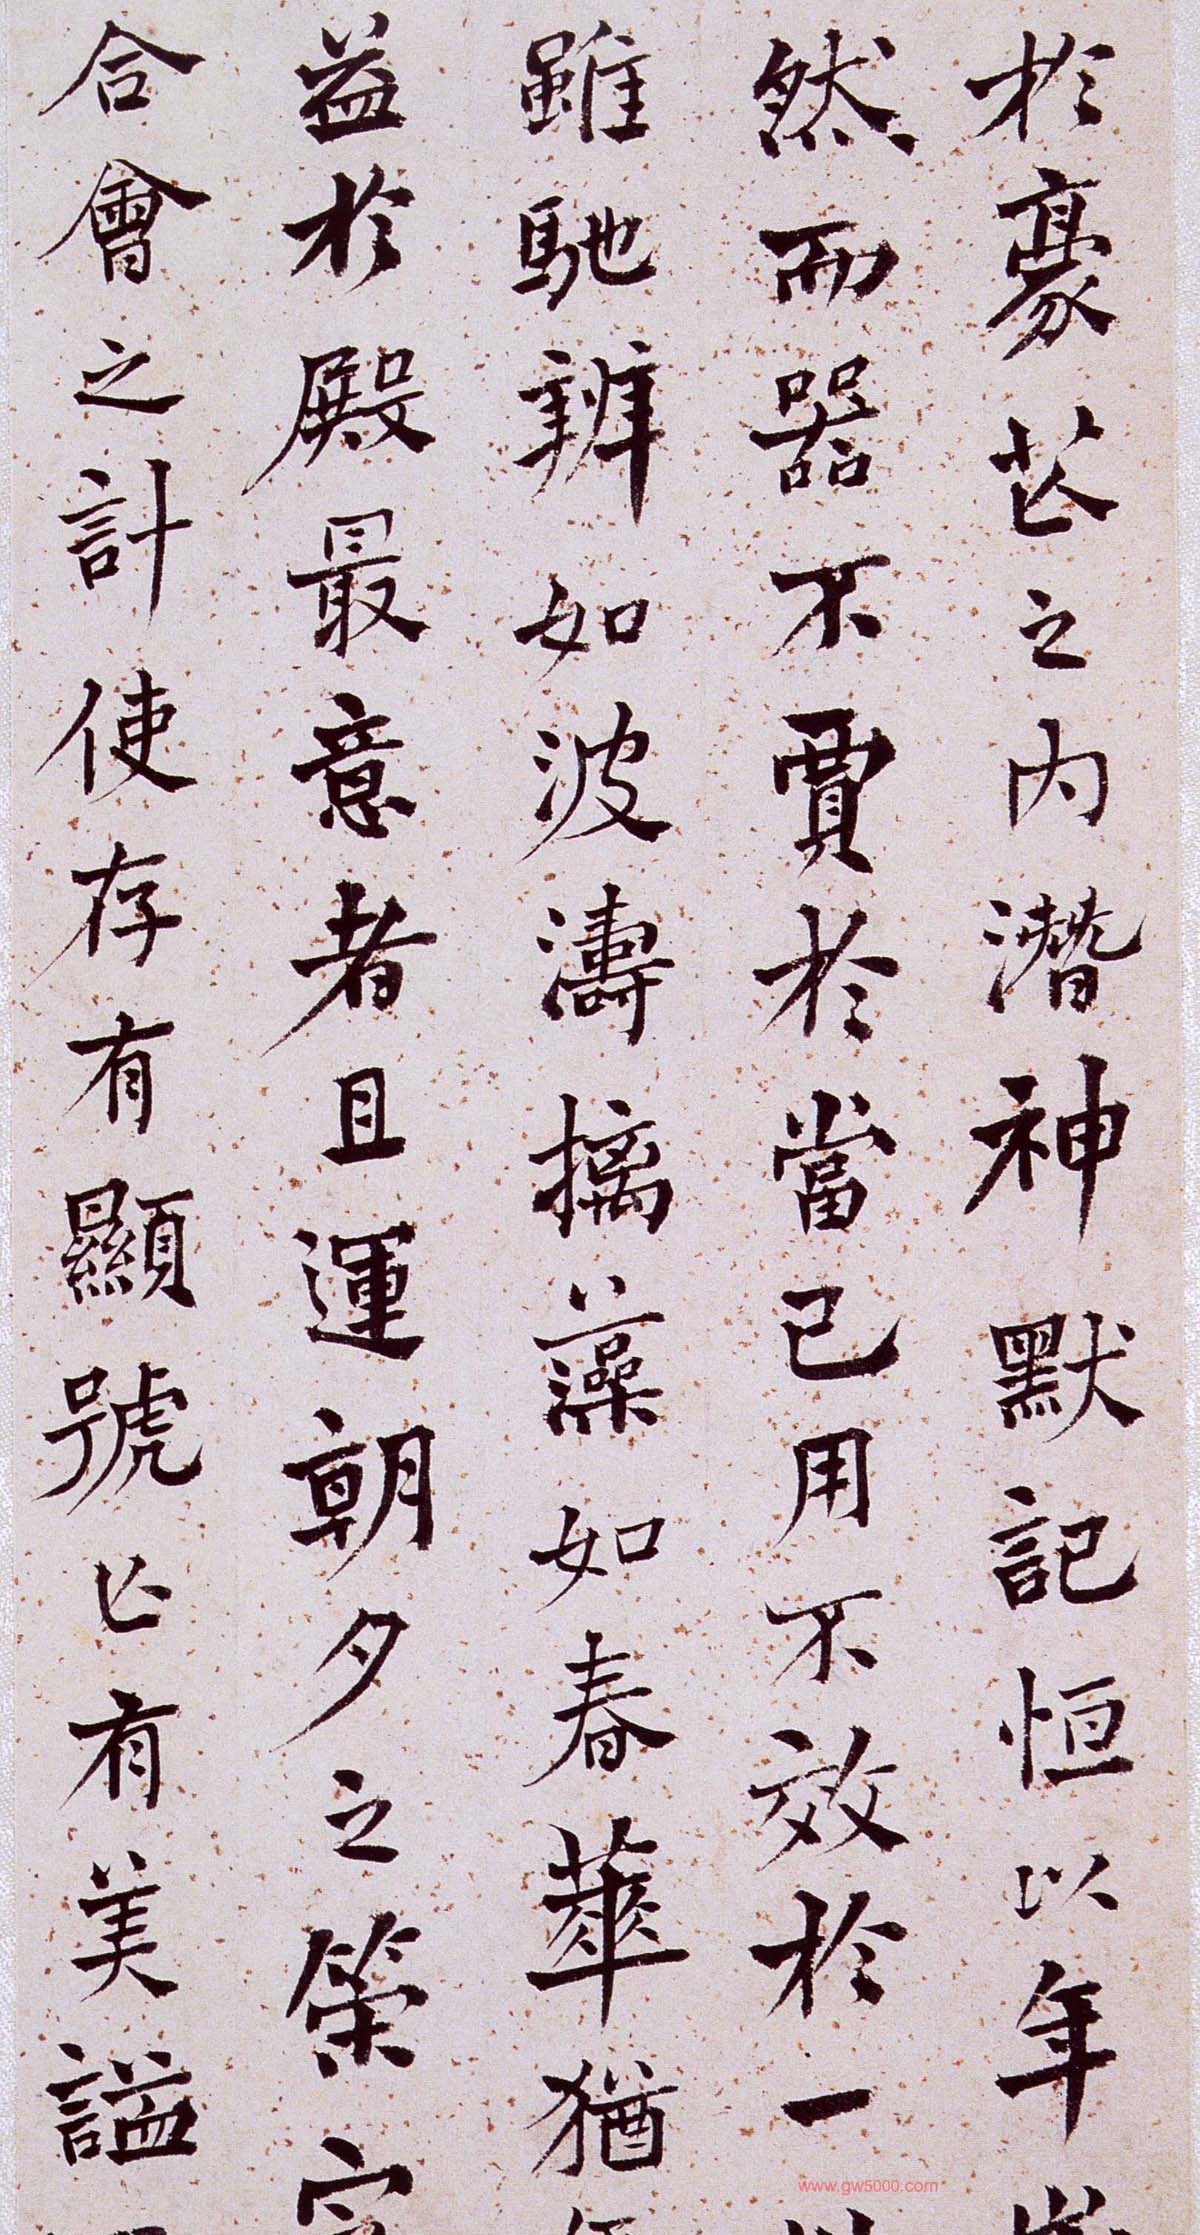 於豪芒之內潛神默記恒以年
然而器不賈於當己用不效於一
雖馳辨如波濤摛藻如春華猶
益於殿最意者且運朝夕之策定
合會之計使存有顯號亡有美謚
www.gw5000.com